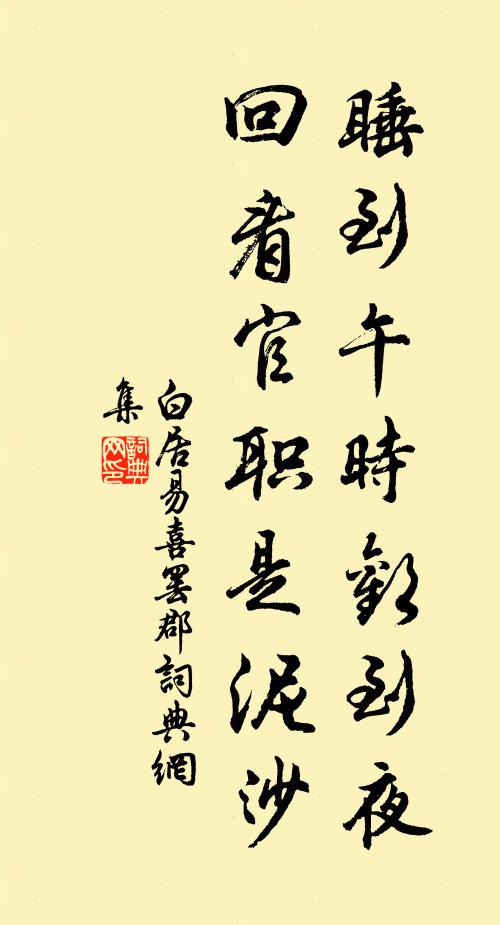 睡到午時歡到夜
回看官职是泥沙
白居易喜罢郡詞典網
集
詞典
网印